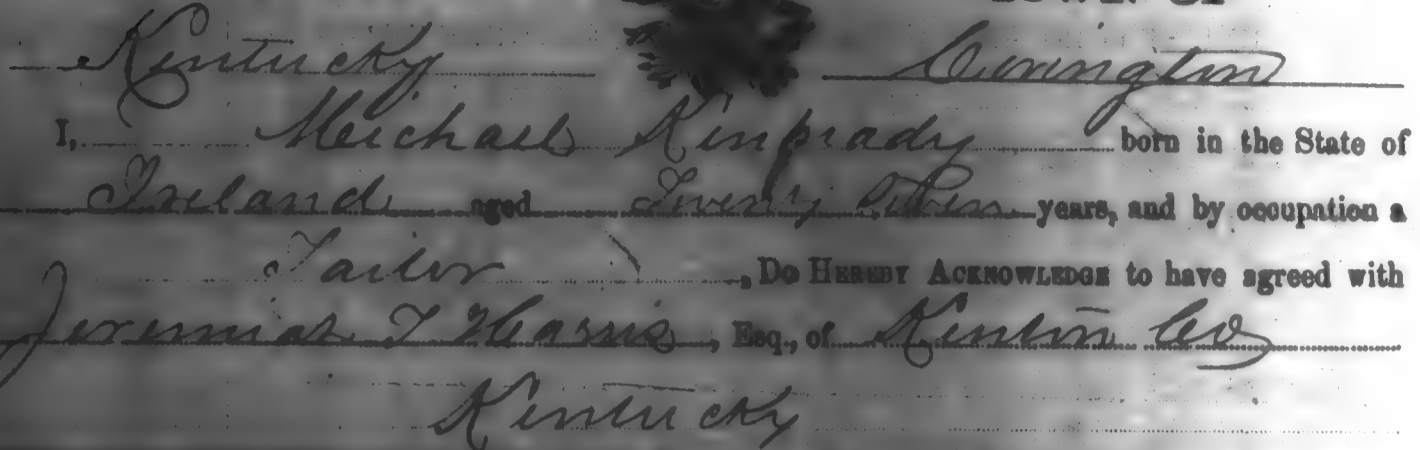 TOWN OF
Kentucky Covington
I, Meichael Kinprady born in the State of
Ireland aged Twenty years, and by occupation a
Tailor, Do Hereby Acknowledge to have agreed with
Jeremiah T Harris, Esq., of Kenton Co
Kentucky